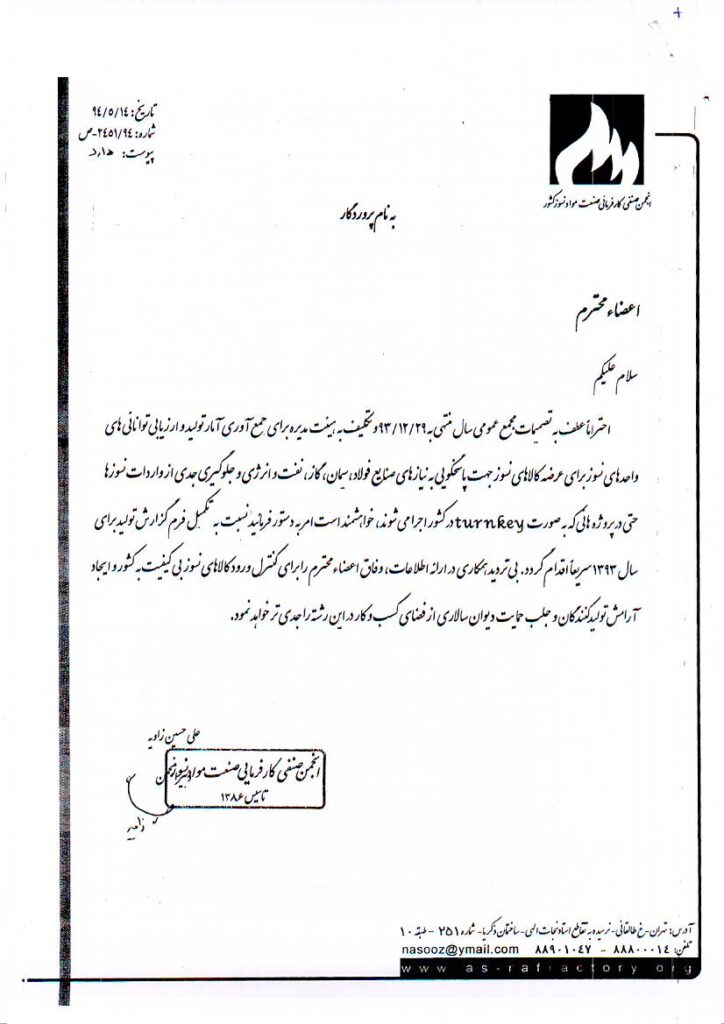 +
تاریخ: ۹۴/۵/۱۴
شماره: ۲۴۵۱/۹۴-ص
پیوست: دارد
انجمن صنفی کارفرمائی صنعت مواد نسوز کشور
به نام پروردگار
اعضاء محترم
سلام علیکم
احتراماً عطف به تصمیمات مجمع عمومی سال منتهی به ۹۳/۱۲/۲۹ و تکلیف به هیئت مدیره برای جمع آوری آمار تولید و ارزیابی توانائی های
واحدهای نسوز برای عرضه کالاهای نسوز جهت پاسخگویی به نیازهای صنایع فولاد، سیمان، گاز، نفت و انرژی و جلوگیری جدی از واردات نسوزها
حتی در پروژه هائی که به صورت turnkey در کشور اجرا می شوند، خواهشمند است امر به دستور فرمائید نسبت به تکمیل فرم گزارش تولید برای
سال ۱۳۹۳ سریعاً اقدام گردد. بی تردید همکاری در ارائه اطلاعات، وفاق اعضاء محترم را برای کنترل ورود کالاهای نسوز بی کیفیت به کشور و ایجاد
آرامش تولیدکنندگان و جلب حمایت دیوان سالاری از فضای کسب و کار در این رشته را جدی تر خواهد نمود.
علی حسین زاویه
دبیر انجمن
انجمن صنفی کارفرمایی صنعت مواد نسوز
تاسیس ۱۳۸۶
زاویه
آدرس: تهران-خ طالقانی-نرسیده به تقاطع استاد نجات الهی-ساختمان ذکریا- شماره ۲۵۱ - طبقه ۱۰
تلفن: ۸۸۸۰۰۰۱۴ - ۸۸۹۰۱۰۴۷ nasooz@ymail.com
www.as-rafractory.org